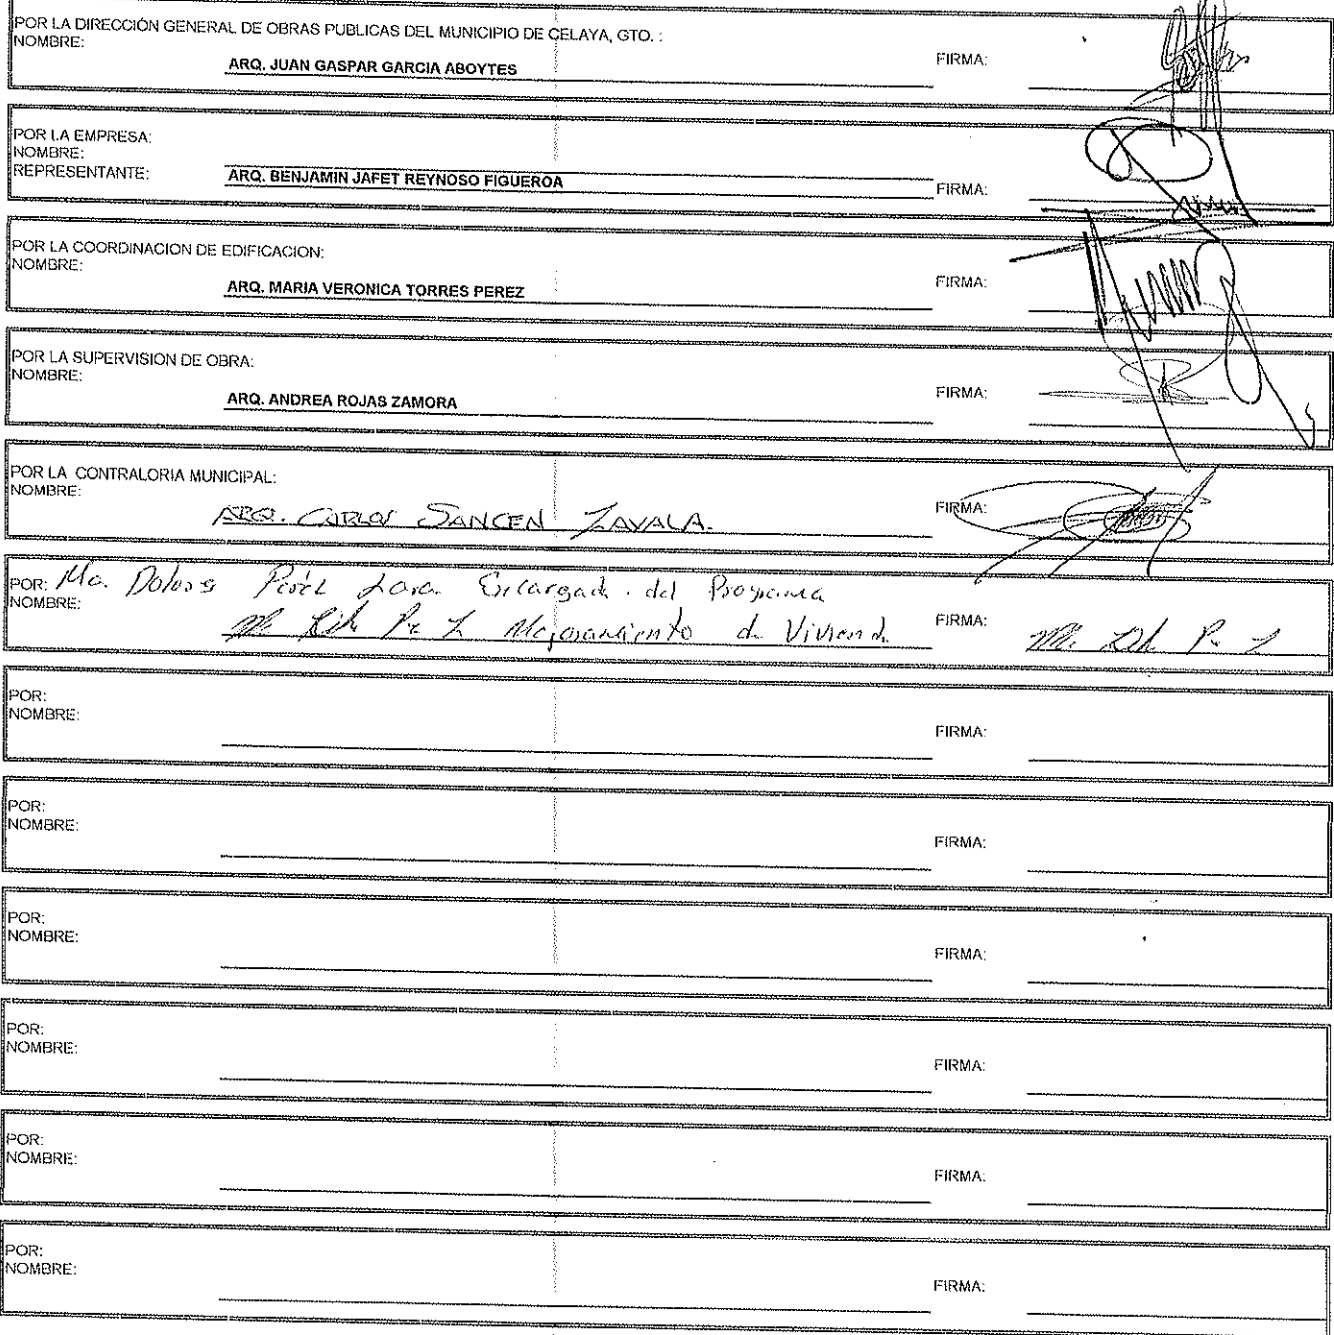 POR LA DIRECCIÓN GENERAL DE OBRAS PUBLICAS DEL MUNICIPIO DE CELAYA, GTO. :
NOMBRE:
ARQ. JUAN GASPAR GARCIA ABOYTES FIRMA:
POR LA EMPRESA:
NOMBRE:
REPRESENTANTE: ARQ. BENJAMIN JAFET REYNOSO FIGUEROA FIRMA:
POR LA COORDINACION DE EDIFICACION:
NOMBRE:
ARQ. MARIA VERONICA TORRES PEREZ FIRMA:
POR LA SUPERVISION DE OBRA:
NOMBRE:
ARQ. ANDREA ROJAS ZAMORA FIRMA:
POR LA CONTRALORIA MUNICIPAL:
NOMBRE:
ARQ. CARLOS SANCEN ZAVALA. FIRMA:
POR: Ma. Dolores Peréz Lara Encargada del Programa
NOMBRE: Mejoramiento de Vivienda FIRMA:
POR:
NOMBRE:
FIRMA:
POR:
NOMBRE:
FIRMA:
POR:
NOMBRE:
FIRMA:
POR:
NOMBRE:
FIRMA:
POR:
NOMBRE:
FIRMA:
POR:
NOMBRE:
FIRMA: